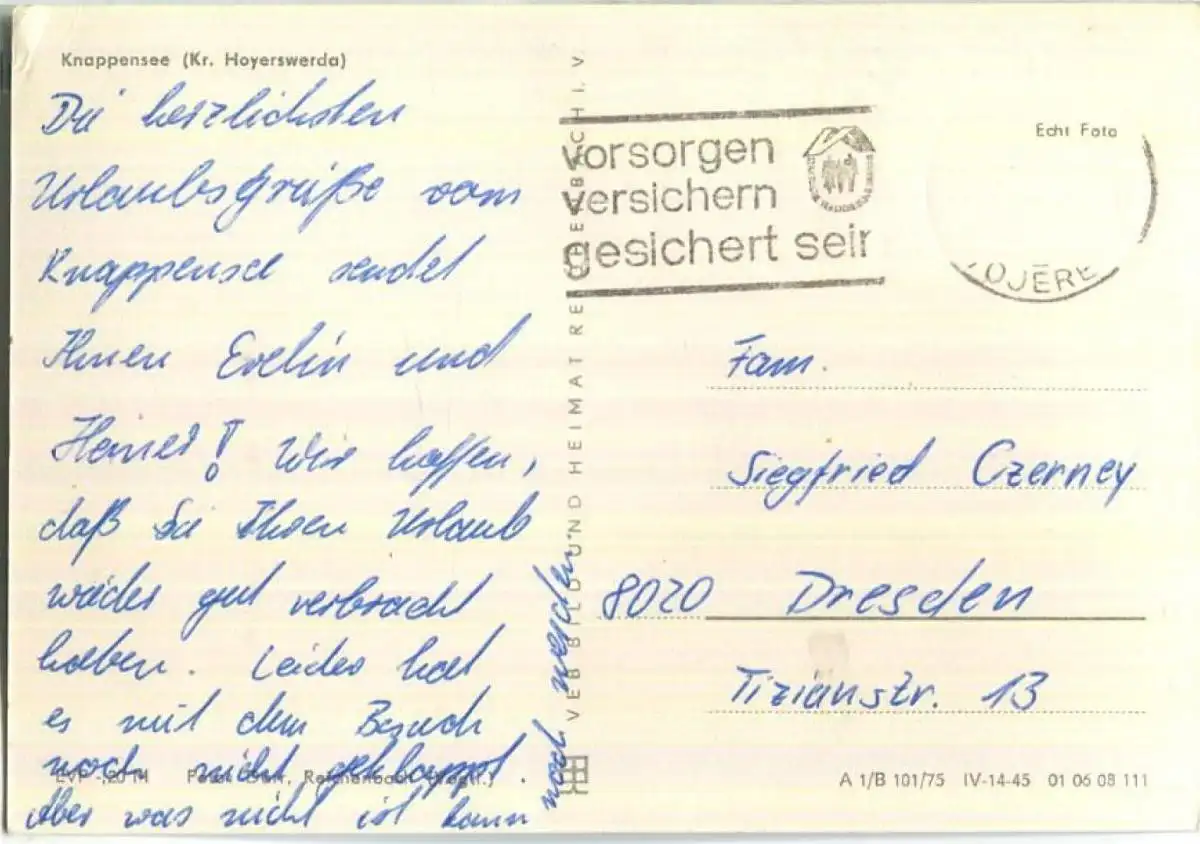 Knappensee (Kr. Hoyerswerda)
Die herzlichsten
Urlaubsgrüße vom
Knappensee sendet
Ihnen Evelin und
Heiner! Wir hoffen,
daß Sie Ihren Urlaub
wieder gut verbracht
haben. Leider hat
es mit dem Besuch
noch nicht geklappt.
Aber was nicht ist kann
noch werden.
EVP -,20 M Reichenbach (Vogtl.)
VEB BILD UND HEIMAT REICHENBACH I. V.
vorsorgen
versichern
gesichert sein
Echt Foto
OJERE
Fam.
Siegfried Czerney
8020 Dresden
Tizianstr. 13
A 1/B 101/75 IV-14-45 01 06 08 111